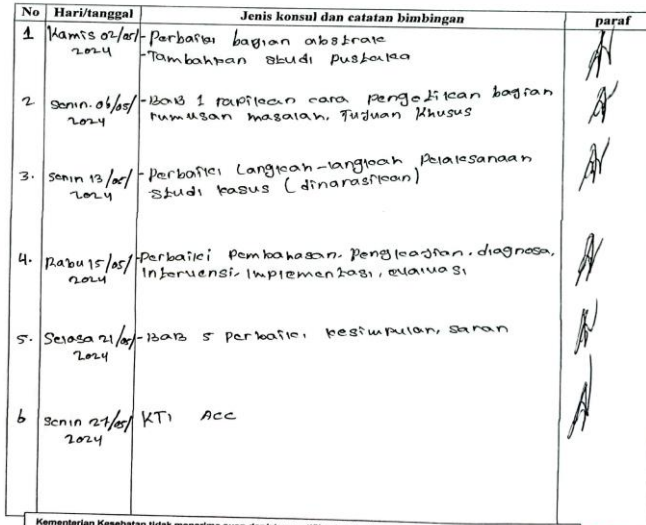 No Hari/tanggal Jenis konsul dan catatan bimbingan paraf
1 Kamis 02/05/ - Perbaiki bagian abstrak
2024 - Tambahkan studi pustaka
2 Senin. 06/05/ - BAB 1 rapikan cara pengetikan bagian
2024 rumusan masalah, Tujuan Khusus
3. Senin 13/05/ - Perbaiki Langkah-langkah Pelaksanaan
2024 Studi kasus (dinarasikan)
4. Rabu 15/05/ - Perbaiki Pembahasan, Pengkajian, diagnosa,
2024 Intervensi, Implementasi, evaluasi
5. Selasa 21/05/ - BAB 5 Perbaiki, kesimpulan, saran
2024
6 Senin 27/05/ KTI Acc
2024
Kementerian Kesehatan tidak menerima suap dan/atau